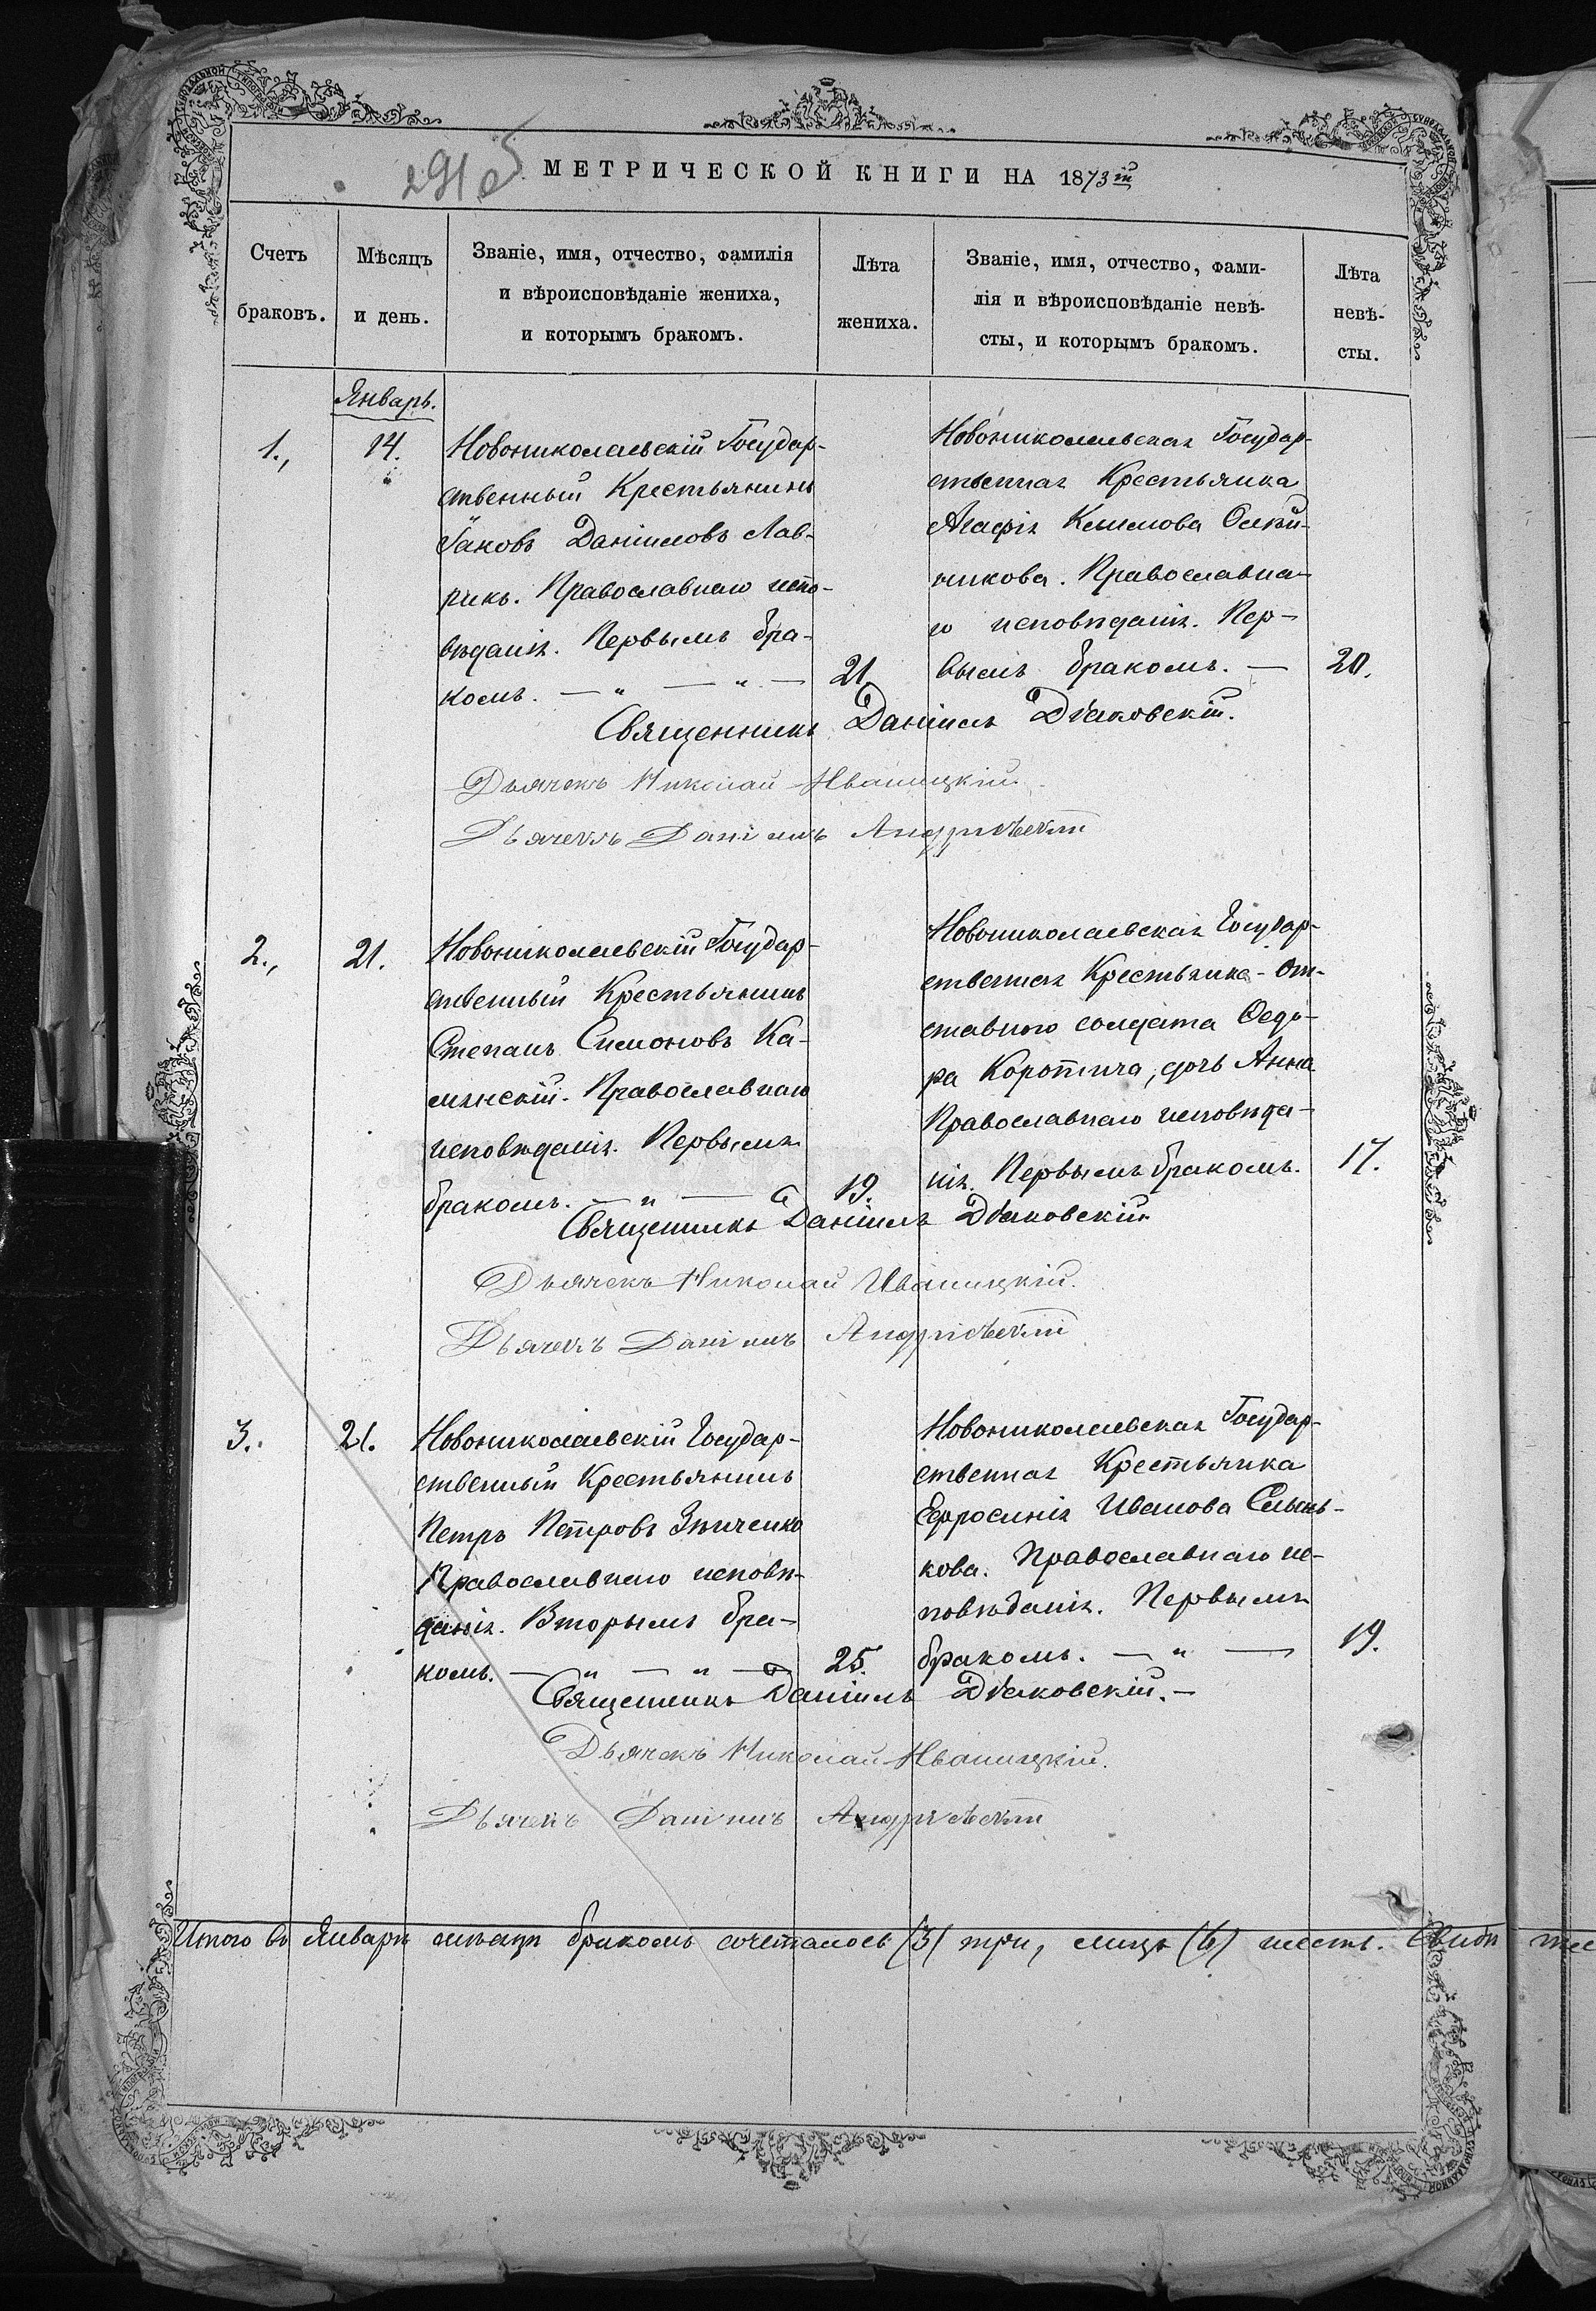 291 об
МЕТРИЧЕСКОЙ КНИГИ НА 1873й
Счетъ браковъ.
Мѣсяцъ и день.
Званіе, имя, отчество, фамилія
и вѣроисповѣданіе жениха,
и которымъ бракомъ.
Лѣта жениха.
Званіе, имя, отчество, фами-
лія и вѣроисповѣданіе невѣ-
сты, и которымъ бракомъ.
Лѣта невѣ-
сты.
Январь.
1., 14.
Новониколаевскій Государ-
ственный Крестьянинъ
Іаковъ Даніиловъ Лав-
рикъ. Православнаго испо-
вѣданія. Первымъ бра-
комъ. — „ — „ — 21.
Новониколаевская Государ-
ственная Крестьянка
Агафія Климова
никова. Православна-
го исповѣданія. Пер-
вымъ бракомъ. — 20.
Священникъ Даніилъ Діаковскій.
Дьячекъ Николай Иваницкій.
Дьячекъ Даніилъ Андріевскій
2., 21.
Новониколаевскій Государ-
ственный Крестьянинъ
Степанъ Симоновъ Ка-
минскій. Православнаго
исповѣданія. Первымъ
бракомъ. — „ — 19.
Новониколаевская Государ-
ственная Крестьянка - от-
ставного солдата Ѳедо-
ра Коротича, дочь Анна
Православнаго исповѣда-
нія. Первымъ бракомъ. 17.
Священникъ Даніилъ Діаковскій
Дьячекъ Николай Иваницкій.
Дьячекъ Даніилъ Андріевскій
3. 21.
Новониколаевскій Государ-
ственный Крестьянинъ
Петръ Петровъ Зѣнченко
Православнаго исповѣ-
данія. Вторымъ бра-
комъ. — „ — „ — 25.
Новониколаевская Государ-
ственная Крестьянка
Ефросинія Иванова
кова. Православнаго ис-
повѣданія. Первымъ
бракомъ. — „ — 19.
Священникъ Даніилъ Діаковскій. —
Дьячекъ Николай Иваницкій.
Дьячекъ Даніилъ Андріевскій
Итого въ Январѣ мѣсяцѣ бракомъ сочеталось (3) три, лицъ (6) шесть. Свидѣ